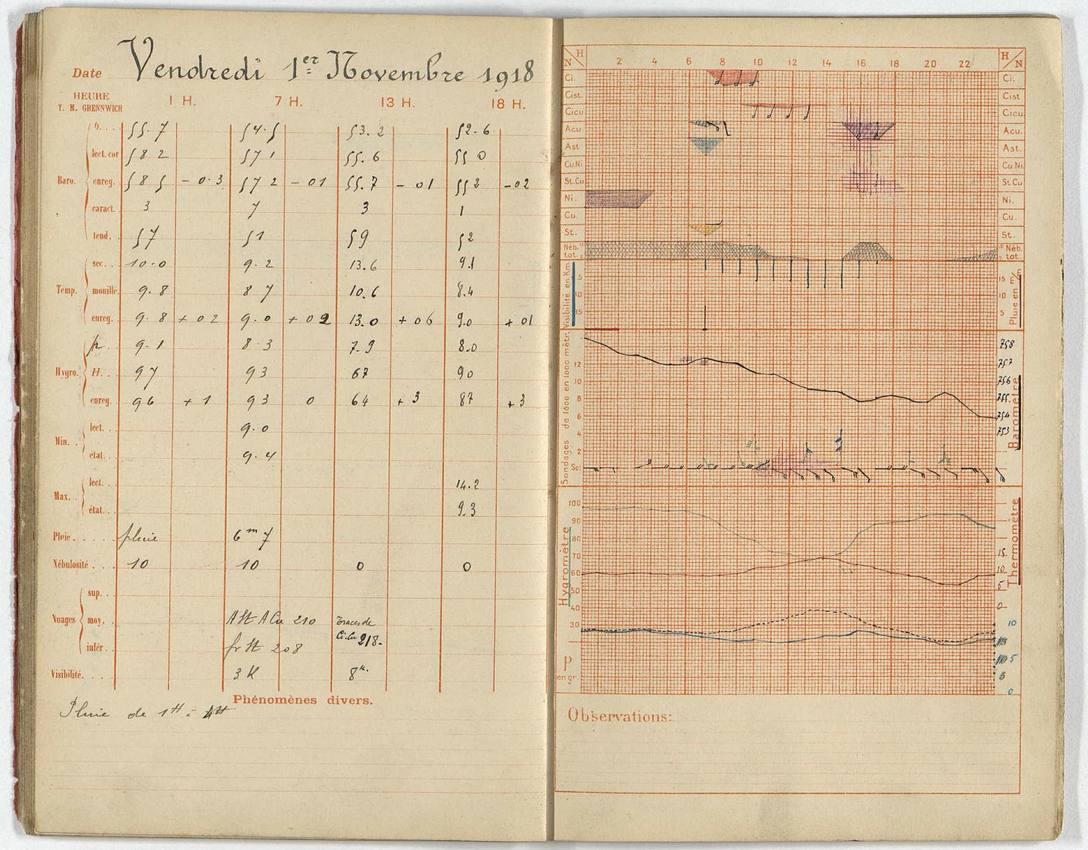 Date Vendredi 1er Novembre 1918
HEURE
T. M. GREENWICH 1 H. 7 H. 13 H. 18 H.
0.... 55.7 54.5 53.2 52.6
lect. cor 58 2 57 1 55.6 55 0
Baro. enreg. 58 5 - 0.3 57 2 - 01 55.7 - 01 55 2 - 02
caract. 3 7 3 1
tend. 57 51 59 52
sec. 10.0 9.2 13.6 9.1
Temp. mouillé 9.8 8 7 10.6 8.4
enreg. 9.8 + 02 9.0 + 02 13.0 + 06 9.0 + 01
p. 9.1 8.3 7.9 8.0
Hygro. H. 97 93 67 90
enreg. 96 + 1 93 0 64 + 3 87 + 3
lect. 9.0
Min. état. 9.4
lect. 14.2
Max. état. 9.3
Pluie. pluie 6m 7
Nébulosité 10 10 0 0
sup.
Nuages moy. ASt ACu 210 Traces de
Ci-Cu 218.
infér. frSt 208
Visibilité. 3 K 8 K.
Phénomènes divers.
Pluie de 1H à 4H
H N 2 4 6 8 10 12 14 16 18 20 22 H N
Ci. Ci.
Cist. Cist
Cicu Cicu
Acu Acu.
Ast Ast.
Cu.Ni Cu.Ni
St.Cu St.Cu
Ni. Ni.
Cu. Cu.
St. St.
Néb. tot. Néb. tot.
Visibilité en Km. 15 10 5
Pluie en m/m 15 10 5
Sondages de 1000 en 1000 mètr. 12 10 8 6 4 2 Sol
758 757 756 755 754 753 Baromètre
Hygromètre 100 90 80 70 60 50 40 30
15 10 5 0 Thermomètre
P en gr.
10 5 0
Observations: